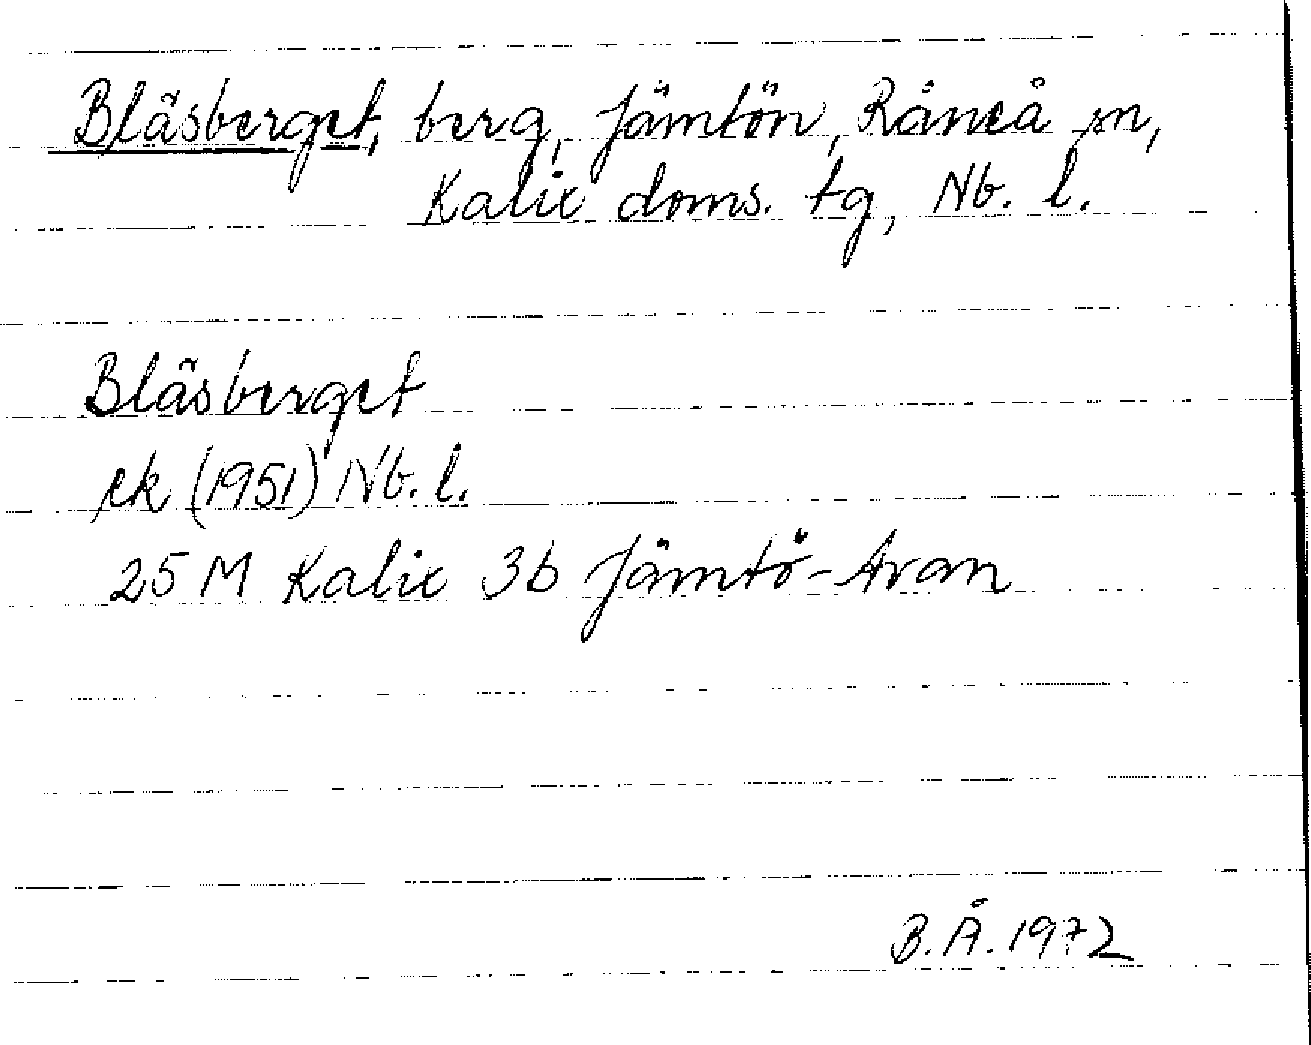 Bläsberget, berg, Jämtön, Råneå sn,
Kalix doms. tg, Nb. l.
Bläsberget
ek (1951) Nb. l.
25 M Kalix 3b Jämtö-Avan
B.Å. 1972